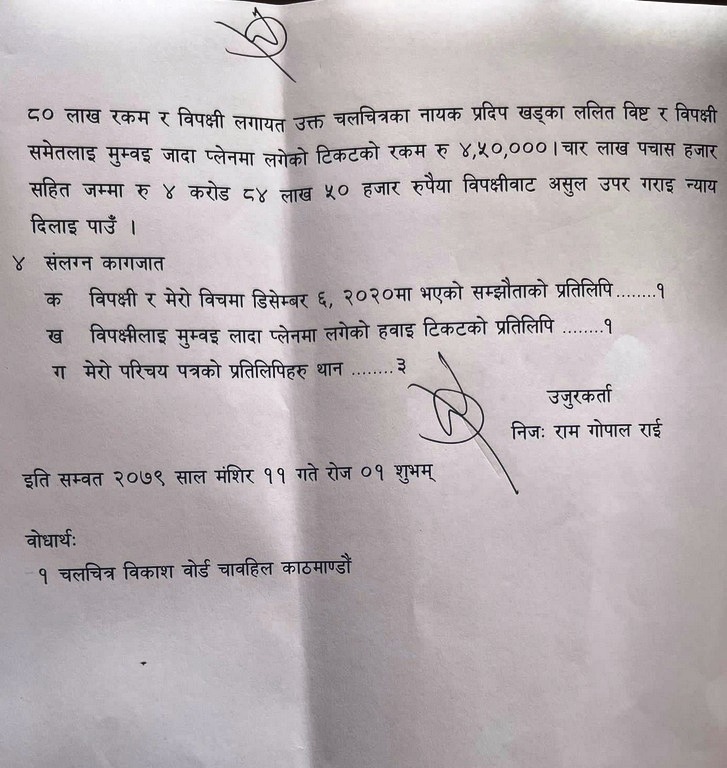 ८० लाख रकम र विपक्षी लगायत उक्त चलचित्रका नायक प्रदिप खड्का ललित विष्ट र विपक्षी
समेतलाइ मुम्वइ जादा प्लेनमा लगेको टिकटको रकम रु ४,५०,०००।चार लाख पचास हजार
सहित जम्मा रु ४ करोड ८४ लाख ५० हजार रुपैया विपक्षीवाट असुल उपर गराइ न्याय
दिलाइ पाउँ ।
४ संलग्न कागजात
क विपक्षी र मेरो विचमा डिसेम्बर ६, २०२०मा भएको सम्झौताको प्रतिलिपि ........१
ख विपक्षीलाइ मुम्वइ लादा प्लेनमा लगेको हवाइ टिकटको प्रतिलिपि ........१
ग मेरो परिचय पत्रको प्रतिलिपिहरु थान ........३
उजुरकर्ता
निजः राम गोपाल राई
इति सम्वत २०७९ साल मंशिर ११ गते रोज ०१ शुभम्
वोधार्थः
१ चलचित्र विकाश वोर्ड चावहिल काठमाण्डौं